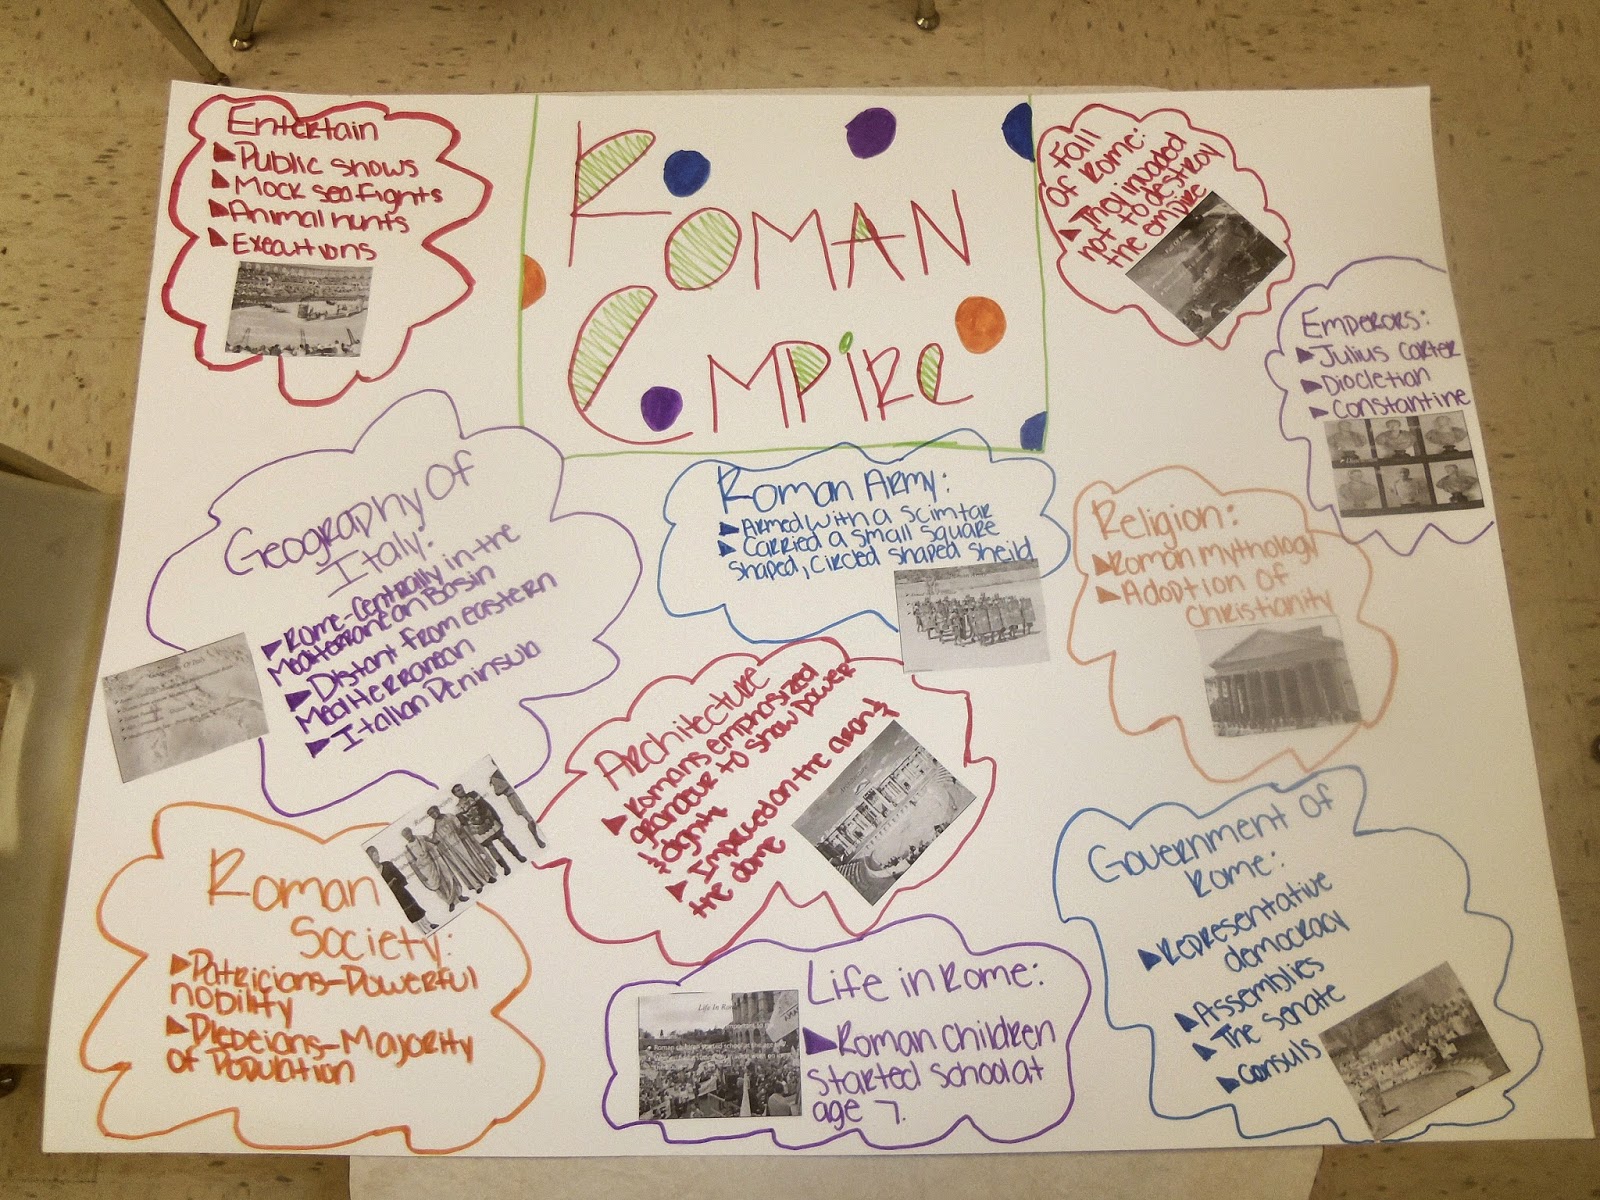 Entertain
Public shows
Mock sea fights
Animal hunts
Executions
Roman
Empire
Fall
of Rome:
They invaded
not to destroy
the empire
Emperors:
Julius Carter
Diocletian
Constantine
Geography Of
Italy:
Rome-Centrally in the
Mediterranean Basin
Distant from eastern
Mediterranean
Itallian Peninsula
Roman Army:
Armed with a scimtar
Carried a small square
shaped, circled shaped sheild
Religion:
Roman mythology
Adoption of
Christianity
Architecture
Romans emphasized
grandeur to show power
& dignity
Improved on the arch &
the dome
Roman
Society:
Patricians-Powerful
nobility
Plebeians-Majority
of Population
Life In Rome
Life in Rome:
Roman children
started school at
age 7.
Government of
Rome:
Representative
democracy
Assemblies
The senate
Consuls